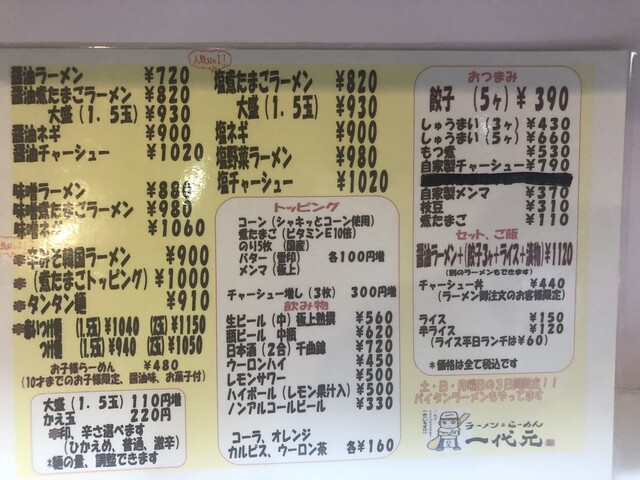 醤油ラーメン ¥720
醤油煮たまごラーメン ¥820
大盛(1.5玉) ¥930
醤油ネギ ¥900
醤油チャーシュー ¥1020
味噌ラーメン ¥880
味噌煮たまごラーメン ¥980
味噌ネギ ¥1060
辛みそ韓国ラーメン ¥900
辛(煮たまごトッピング) ¥1000
辛タンタン麺 ¥910
(1.5玉)¥1040 (2玉)¥1150
つけ麺 (1.5玉)¥940 (2玉)¥1050
お子様らーめん ¥480
(10才までのお子様限定、醤油味、お菓子付)
大盛(1.5玉)110円増
かえ玉 220円
辛印、辛さ選べます
(ひかえめ、普通、激辛)
*麺の量、調整できます
人気No1!
塩煮たまごラーメン ¥820
大盛(1.5玉) ¥930
塩ネギ ¥900
塩野菜ラーメン ¥980
塩チャーシュー ¥1020
トッピング
コーン(シャキッとコーン使用)
煮たまご(ビタミンE10倍)
のり5枚(国産)
バター(雪印) 各100円増
メンマ(極上)
チャーシュー増し(3枚) 300円増
飲み物
生ビール(中)極上熟撰 ¥560
瓶ビール 中瓶 ¥620
日本酒(2合)千曲錦 ¥720
ウーロンハイ ¥450
レモンサワー ¥500
ハイボール(レモン果汁入) ¥500
ノンアルコールビール ¥330
コーラ、オレンジ
カルピス、ウーロン茶 各¥160
おつまみ
餃子 (5ヶ) ¥390
しゅうまい(3ヶ) ¥430
しゅうまい(5ヶ) ¥660
もつ煮 ¥530
自家製チャーシュー ¥790
自家製メンマ ¥370
枝豆 ¥310
煮たまご ¥110
セット、ご飯
醤油ラーメン+(餃子3ヶ+ライス+漬物)¥1120
(別のラーメンもできます)
チャーシュー丼 ¥440
(ラーメン御注文のお客様限定)
ライス ¥150
半ライス ¥120
(ライス平日ランチは¥60)
*価格は全て税込です
土・日・月曜日の3日間限定!!
パイタンラーメンもやってます
ラーメン・らーめん
一代元